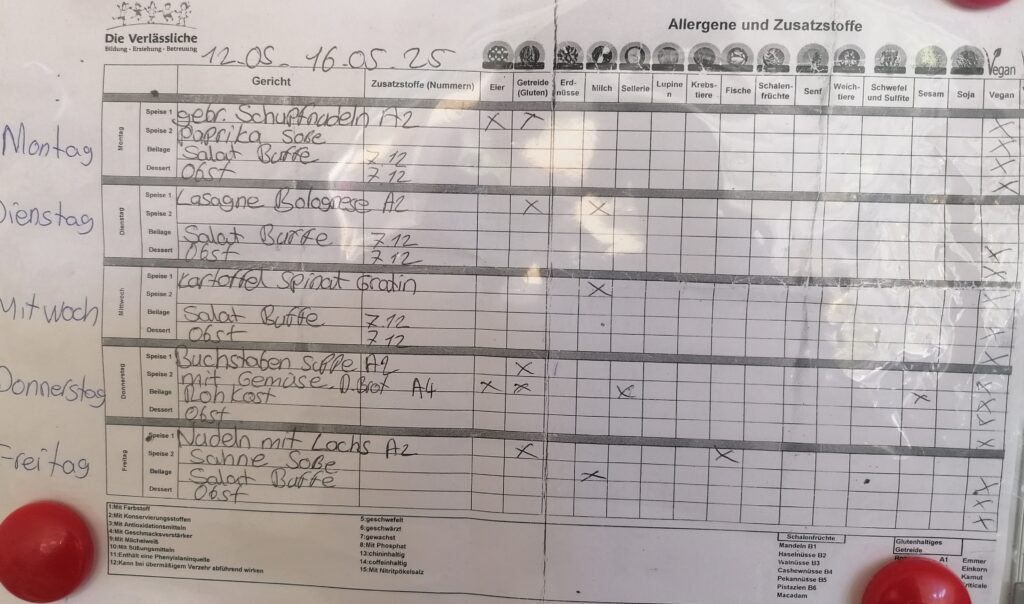 Die Verlässliche
Bildung - Erziehung - Betreuung
Allergene und Zusatzstoffe
12.05 - 16.05.25
Vegan
Gericht Zusatzstoffe (Nummern) Eier Getreide (Gluten) Erd-nüsse Milch Sellerie Lupinen Krebs-tiere Fische Schalen-früchte Senf Weich-tiere Schwefel und Sulfite Sesam Soja Vegan
Montag
Montag
Speise 1 gebr. Schupfnudeln A2 X X X
Speise 2 Paprika Soße X
Beilage Salat Buffe 7 12 X
Dessert Obst 7 12 X
Dienstag
Dienstag
Speise 1 Lasagne Bolognese A2 X X
Speise 2
Beilage Salat Buffe 7 12 X
Dessert Obst 7 12 X
Mittwoch
Mittwoch
Speise 1 Kartoffel Spinat Gratin X X
Speise 2
Beilage Salat Buffe 7 12 X
Dessert Obst 7 12 X
Donnerstag
Donnerstag
Speise 1 Buchstaben suppe A2 X X
Speise 2 mit Gemüse D.Brot A4 X X X X X
Beilage Rohkost X
Dessert Obst X
Freitag
Freitag
Speise 1 Nudeln mit Lachs A2 X X
Speise 2 Sahne Soße X
Beilage Salat Buffe X
Dessert Obst X
1:Mit Farbstoff
2:Mit Konservierungsstoffen
3:Mit Antioxidationsmitteln
4:Mit Geschmacksverstärker
9:Mit Milcheiweiß
10:Mit Süßungsmitteln
11:Enthält eine Phenylalaninquelle
12:Kann bei übermäßigem Verzehr abführend wirken
5:geschwefelt
6:geschwärzt
7:gewachst
8:Mit Phosphat
13:chininhaltig
14:coffeinhaltig
15:Mit Nitritpökelsalz
Schalenfrüchte
Mandeln B1
Haselnüsse B2
Walnüsse B3
Cashewnüsse B4
Pekannüsse B5
Pistazien B6
Macadam
Glutenhaltiges Getreide
A1 Emmer
Einkorn
Kamut